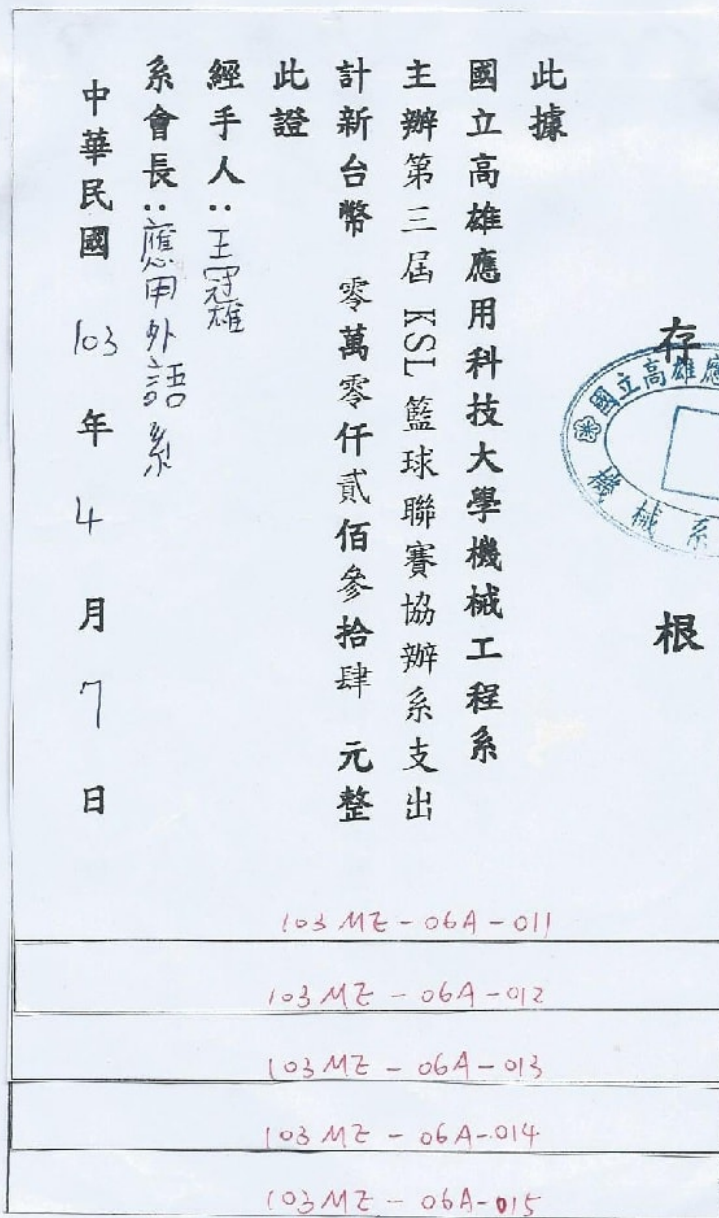 存根
國立高雄應
機械系
此據
國立高雄應用科技大學機械工程系
主辦第三屆 KSL 籃球聯賽協辦系支出
計新台幣 零萬零仟貳佰參拾肆 元整
此證
經手人：王冠雄
系會長：應用外語系
中華民國 103 年 4 月 7 日
103 ME - 06A - 011
103 ME - 06A - 012
103 ME - 06A - 013
103 ME - 06A - 014
103 ME - 06A - 015